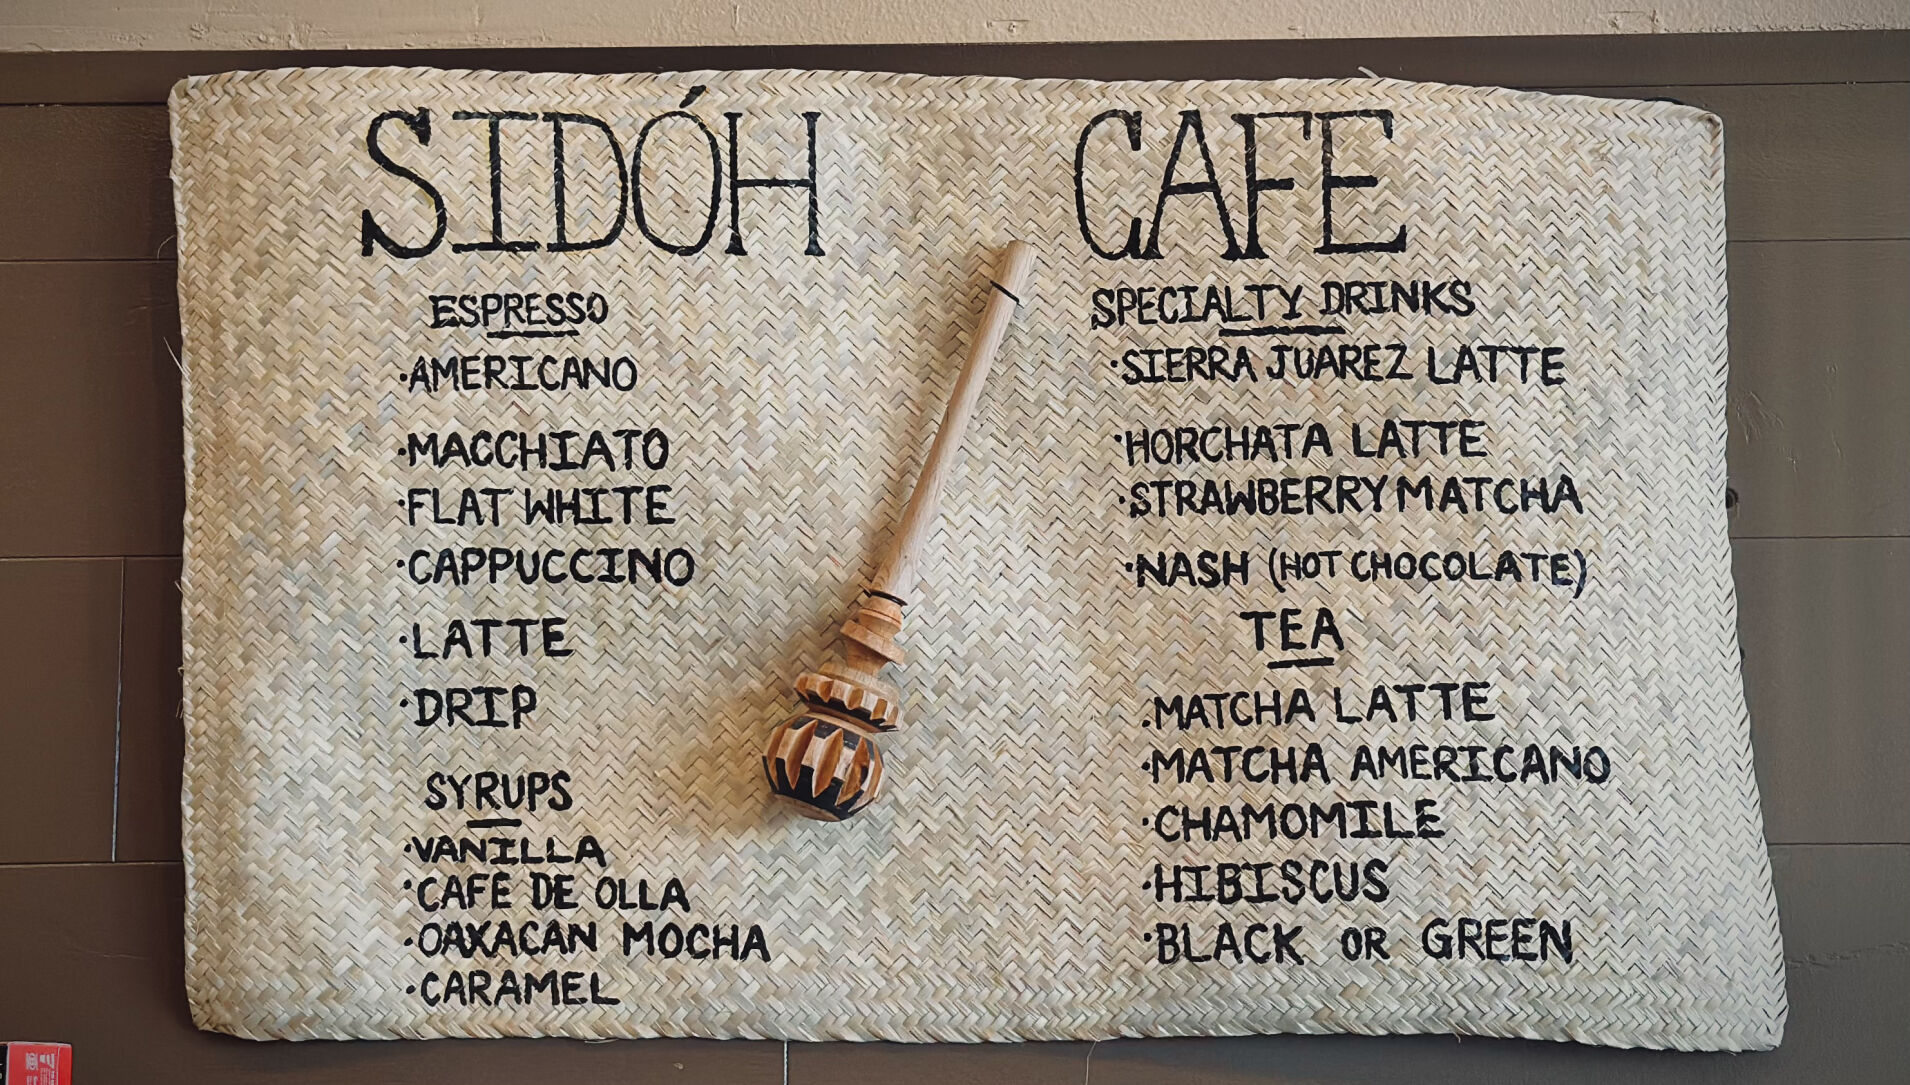 SIDÓH CAFE
ESPRESSO
·AMERICANO
·MACCHIATO
·FLAT WHITE
·CAPPUCCINO
·LATTE
·DRIP
SYRUPS
·VANILLA
·CAFE DE OLLA
·OAXACAN MOCHA
·CARAMEL
SPECIALTY DRINKS
·SIERRA JUAREZ LATTE
·HORCHATA LATTE
·STRAWBERRY MATCHA
·NASH (HOT CHOCOLATE)
TEA
·MATCHA LATTE
·MATCHA AMERICANO
·CHAMOMILE
·HIBISCUS
·BLACK OR GREEN